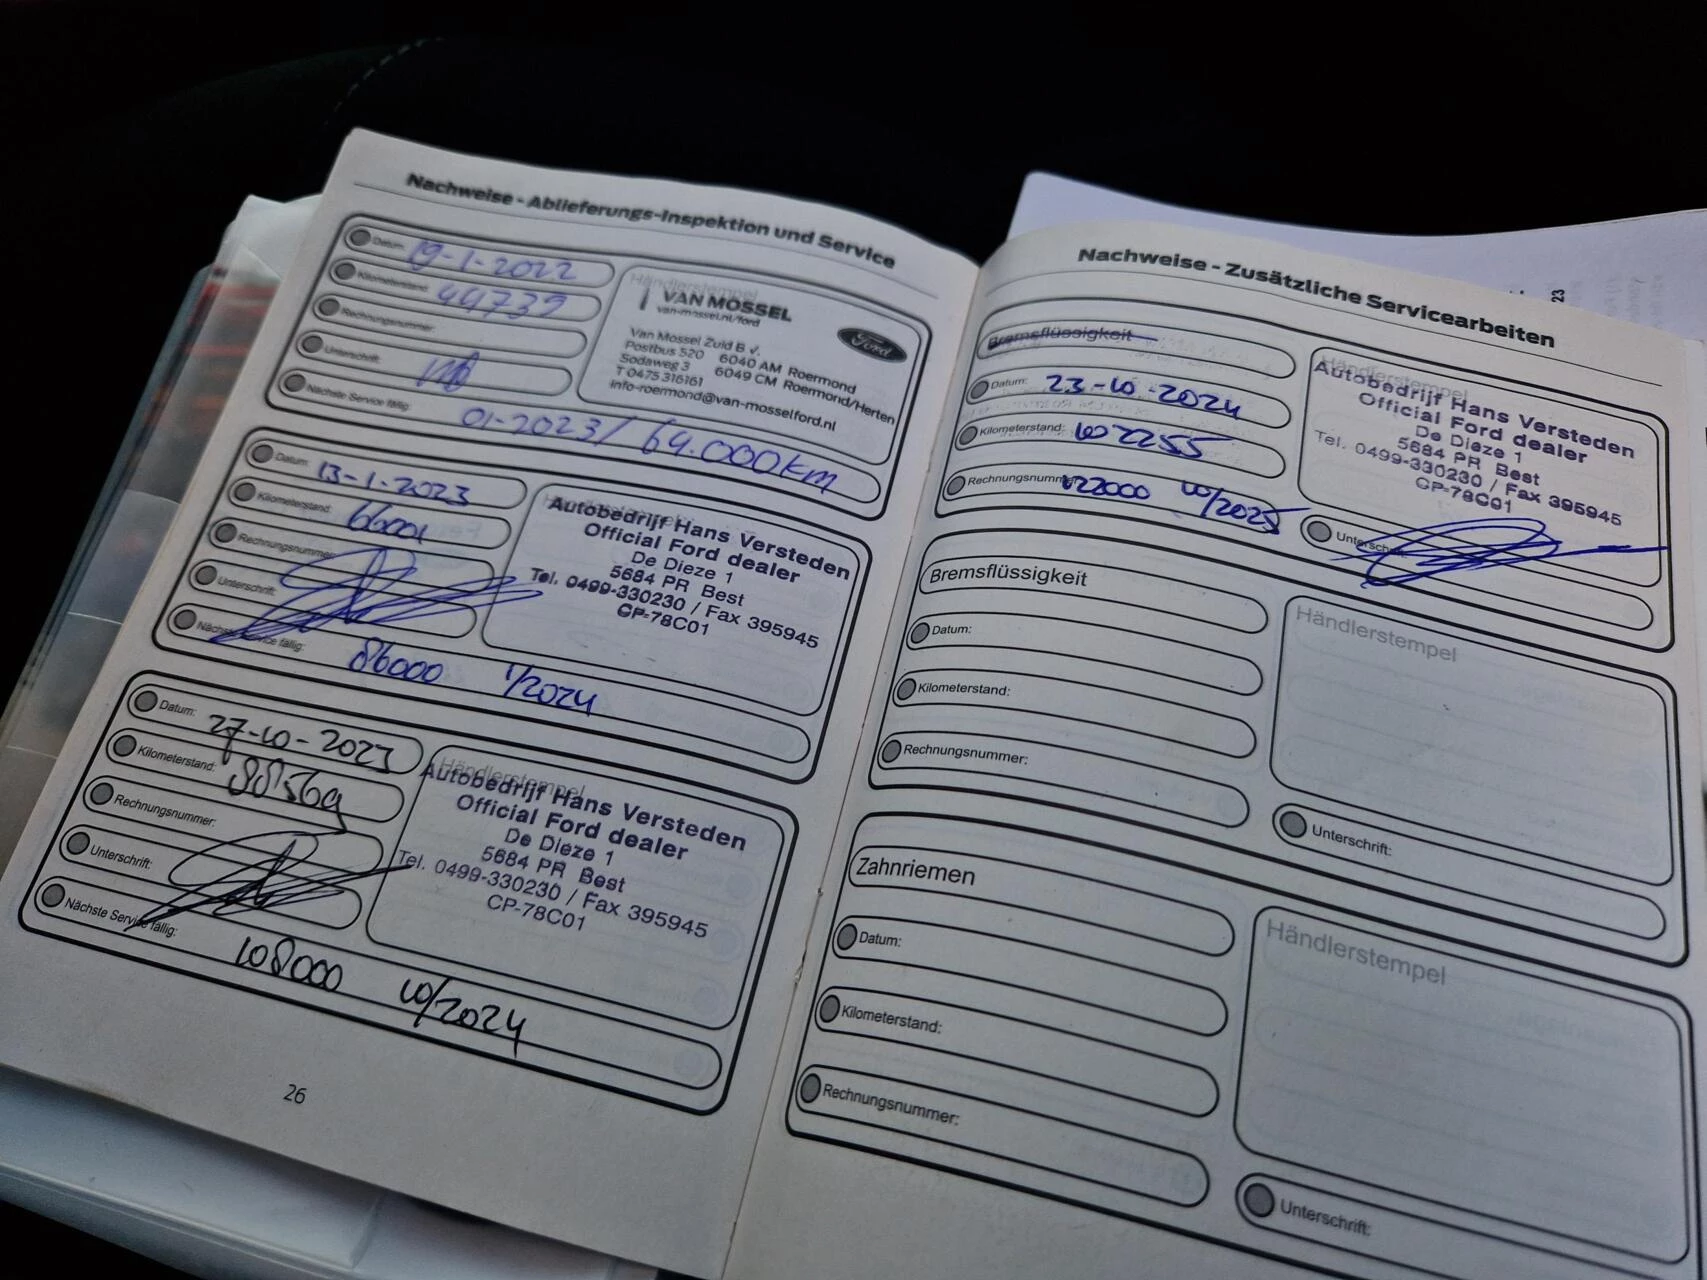 Nachweise - Ablieferungs-Inspektion und Service
Datum: 19-1-2022
Kilometerstand: 44739
Rechnungsnummer:
Unterschrift:
Nächste Service fällig: 01-2023/ 64.000km
Händlerstempel
VAN MOSSEL
van-mossel.nl/ford
Ford
Van Mossel Zuid B.V.
Postbus 520 6040 AM Roermond
Sodaweg 3 6049 CM Roermond/Herten
T 0475 316161
info-roermond@van-mosselford.nl
Datum: 13-1-2023
Kilometerstand: 66001
Rechnungsnummer:
Unterschrift:
Nächste Service fällig: 86000 1/2024
Autobedrijf Hans Versteden
Official Ford dealer
De Dieze 1
5684 PR Best
Tel. 0499-330230 / Fax 395945
CP-78C01
Datum: 27-10-2023
Kilometerstand: 88569
Rechnungsnummer:
Unterschrift:
Nächste Service fällig: 108000 10/2024
Händlerstempel
Autobedrijf Hans Versteden
Official Ford dealer
De Dieze 1
5684 PR Best
Tel. 0499-330230 / Fax 395945
CP-78C01
26
Nachweise - Zusätzliche Servicearbeiten
Bremsflüssigkeit
Datum: 23-10-2024
Kilometerstand: 102255
Rechnungsnummer: 122000 10/2025
Händlerstempel
Autobedrijf Hans Versteden
Official Ford dealer
De Dieze 1
5684 PR Best
Tel. 0499-330230 / Fax 395945
CP-78C01
Unterschrift:
Bremsflüssigkeit
Datum:
Kilometerstand:
Rechnungsnummer:
Händlerstempel
Unterschrift:
Zahnriemen
Datum:
Kilometerstand:
Rechnungsnummer:
Händlerstempel
Unterschrift:
23